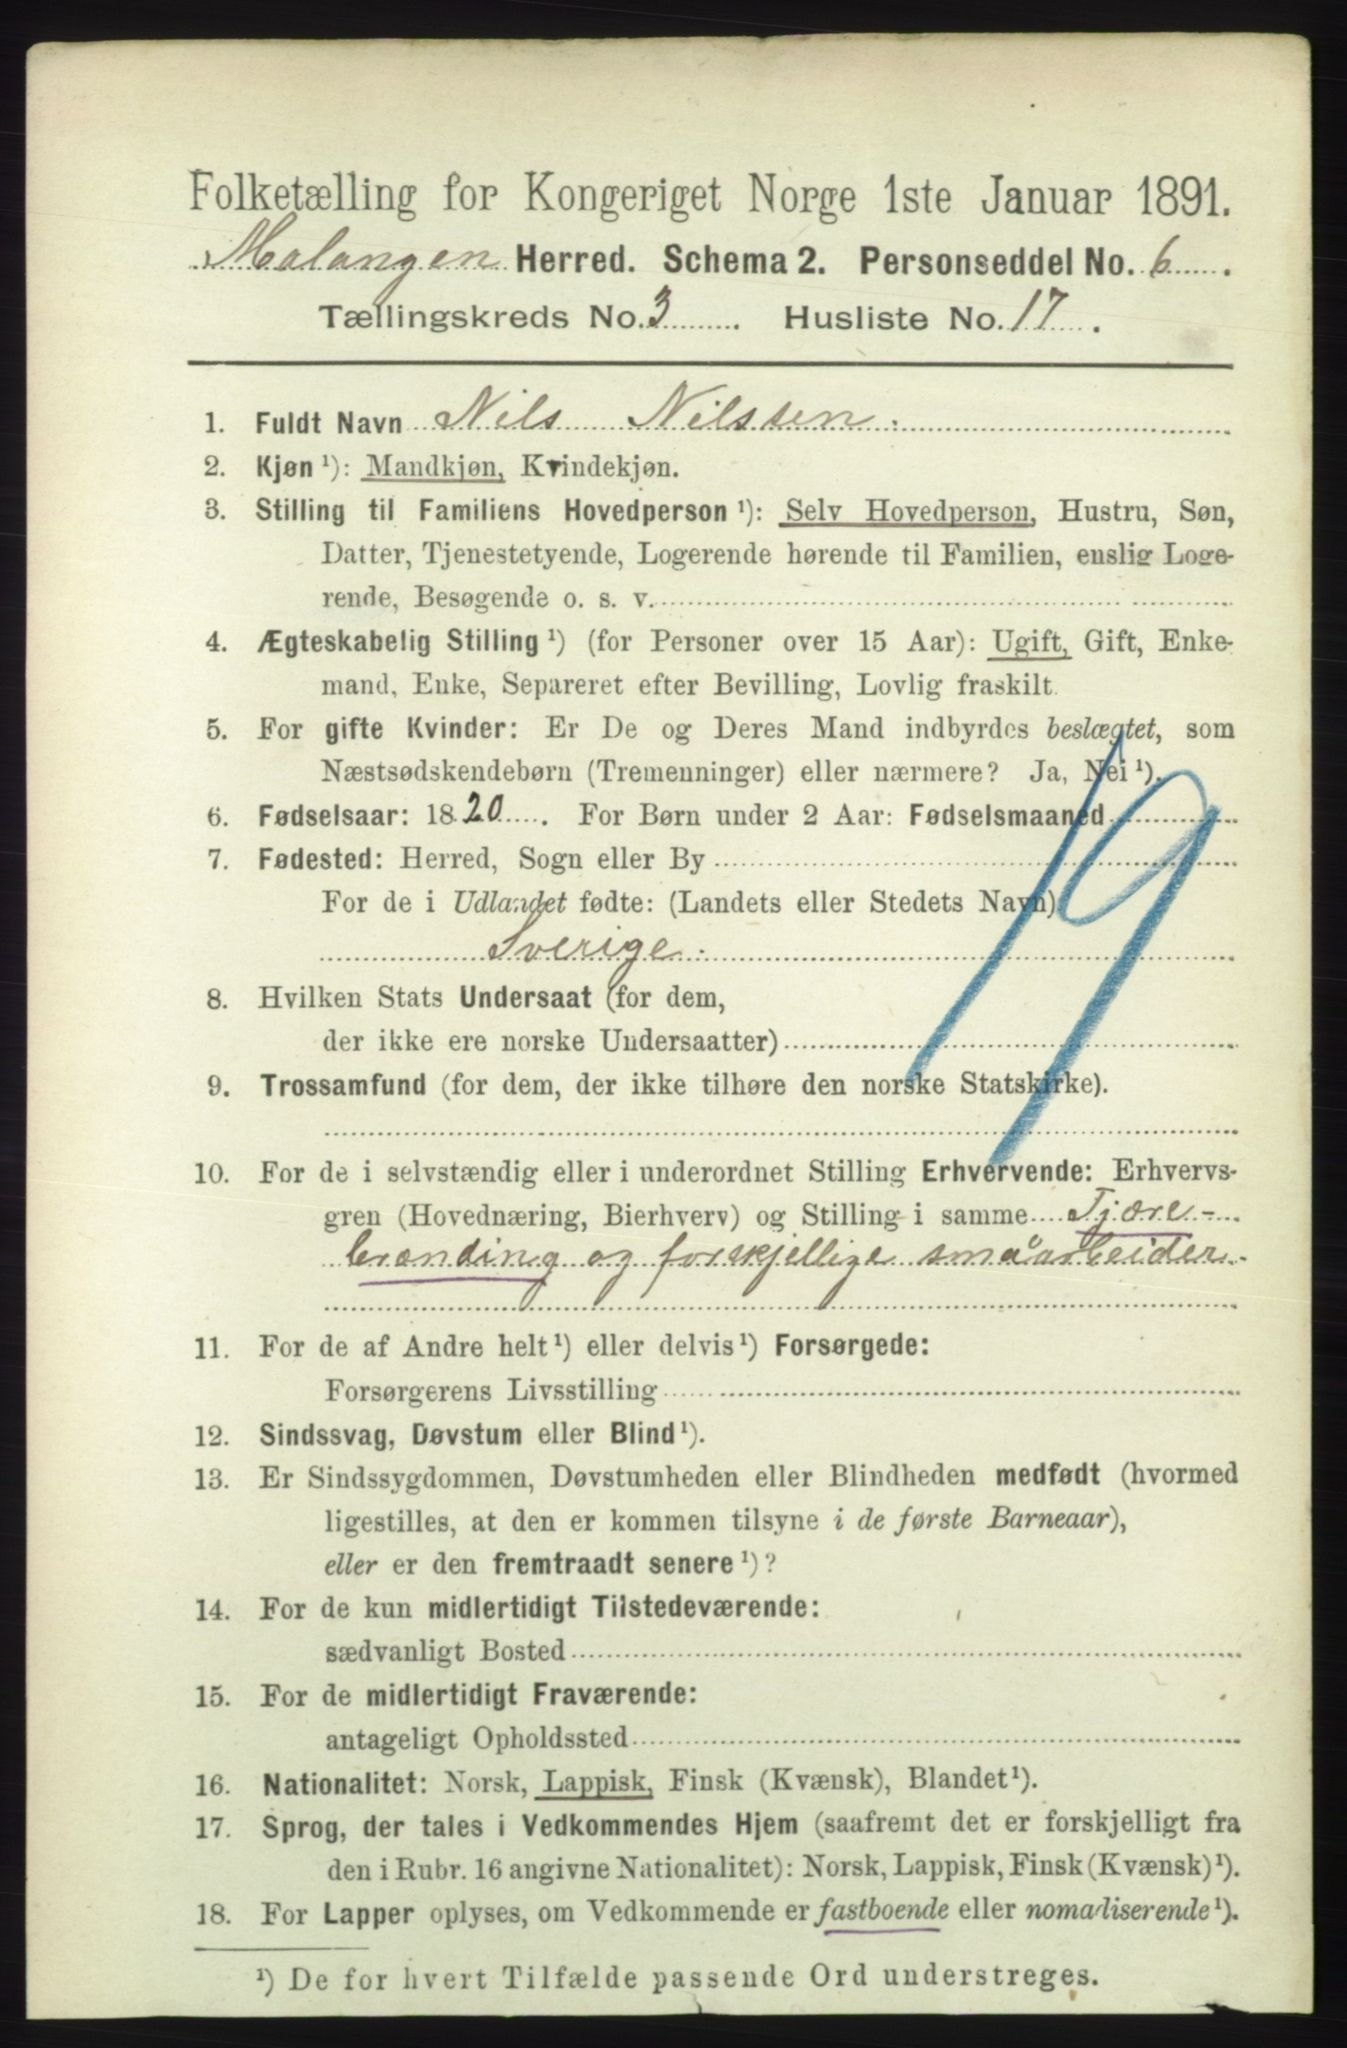 Folketælling for Kongeriget Norge 1ste Januar 1891.
Malangen Herred. Schema 2. Personseddel No. 6.
Tællingskreds No. 3. Husliste No. 17.
1. Fuldt Navn Nils Nilssen.
2. Kjøn ¹): Mandkjøn, Kvindekjøn.
3. Stilling til Familiens Hovedperson ¹): Selv Hovedperson, Hustru, Søn,
Datter, Tjenestetyende, Logerende hørende til Familien, enslig Loge-
rende, Besøgende o. s. v.
4. Ægteskabelig Stilling ¹) (for Personer over 15 Aar): Ugift, Gift, Enke-
mand, Enke, Separeret efter Bevilling, Lovlig fraskilt.
5. For gifte Kvinder: Er De og Deres Mand indbyrdes beslægtet, som
Næstsødskendebørn (Tremenninger) eller nærmere? Ja, Nei ¹).
19
6. Fødselsaar: 1820. For Børn under 2 Aar: Fødselsmaaned
7. Fødested: Herred, Sogn eller By
For de i Udlandet fødte: (Landets eller Stedets Navn)
Sverige.
8. Hvilken Stats Undersaat (for dem,
der ikke ere norske Undersaatter)
9. Trossamfund (for dem, der ikke tilhøre den norske Statskirke).
10. For de i selvstændig eller i underordnet Stilling Erhvervende: Erhvervs-
gren (Hovednæring, Bierhverv) og Stilling i samme Tjære-
brænding og forskjellige småarbeider.
11. For de af Andre helt ¹) eller delvis ¹) Forsørgede:
Forsørgerens Livsstilling
12. Sindssvag, Døvstum eller Blind ¹).
13. Er Sindssygdommen, Døvstumheden eller Blindheden medfødt (hvormed
ligestilles, at den er kommen tilsyne i de første Barneaar),
eller er den fremtraadt senere ¹)?
14. For de kun midlertidigt Tilstedeværende:
sædvanligt Bosted
15. For de midlertidigt Fraværende:
antageligt Opholdssted
16. Nationalitet: Norsk, Lappisk, Finsk (Kvænsk), Blandet ¹).
17. Sprog, der tales i Vedkommendes Hjem (saafremt det er forskjelligt fra
den i Rubr. 16 angivne Nationalitet): Norsk, Lappisk, Finsk (Kvænsk) ¹).
18. For Lapper oplyses, om Vedkommende er fastboende eller nomadiserende ¹).
¹) De for hvert Tilfælde passende Ord understreges.